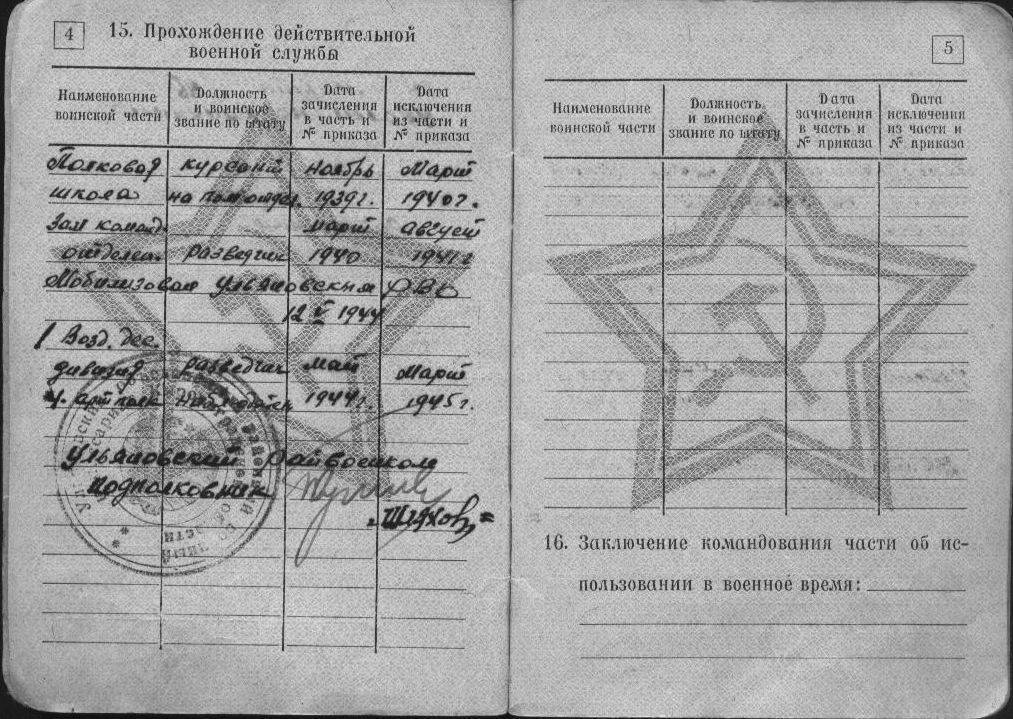 4
15. Прохождение действительной
военной службы
Наименование
воинской части
Должность
и воинское
звание по штату
Дата
зачисления
в часть и
№ приказа
Дата
исключения
из части и
№ приказа
Полковая курсант ноябрь Март
школа на пом 1939 г. 1940 г.
Зам команд. март август
отделен. разведчик 1940 1941 г
Мобилизован Ульяновским РВК
12 V 1944
1 Возд. дес.
дивизия разведчик май Март
арт полк 1944 г. 1945 г.
Ульяновский Райвоенком
Подполковник
5
Наименование
воинской части
Должность
и воинское
звание по штату
Дата
зачисления
в часть и
№ приказа
Дата
исключения
из части и
№ приказа
16. Заключение командования части об ис-
пользовании в военное время: